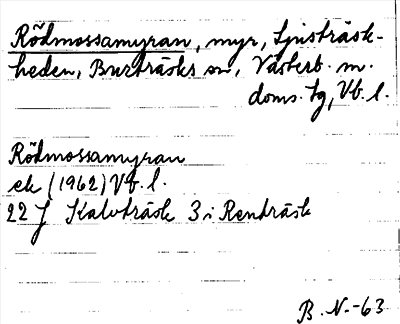 Rödmossamyran, myr, Ljusträsk-
heden, Burträsks sn, Västerb. m.
doms. lg, Vb. l.
Rödmossamyran
ek (1962) Vb. l.
22 J Kalvträsk 3 i Renträsk
B. N. -63